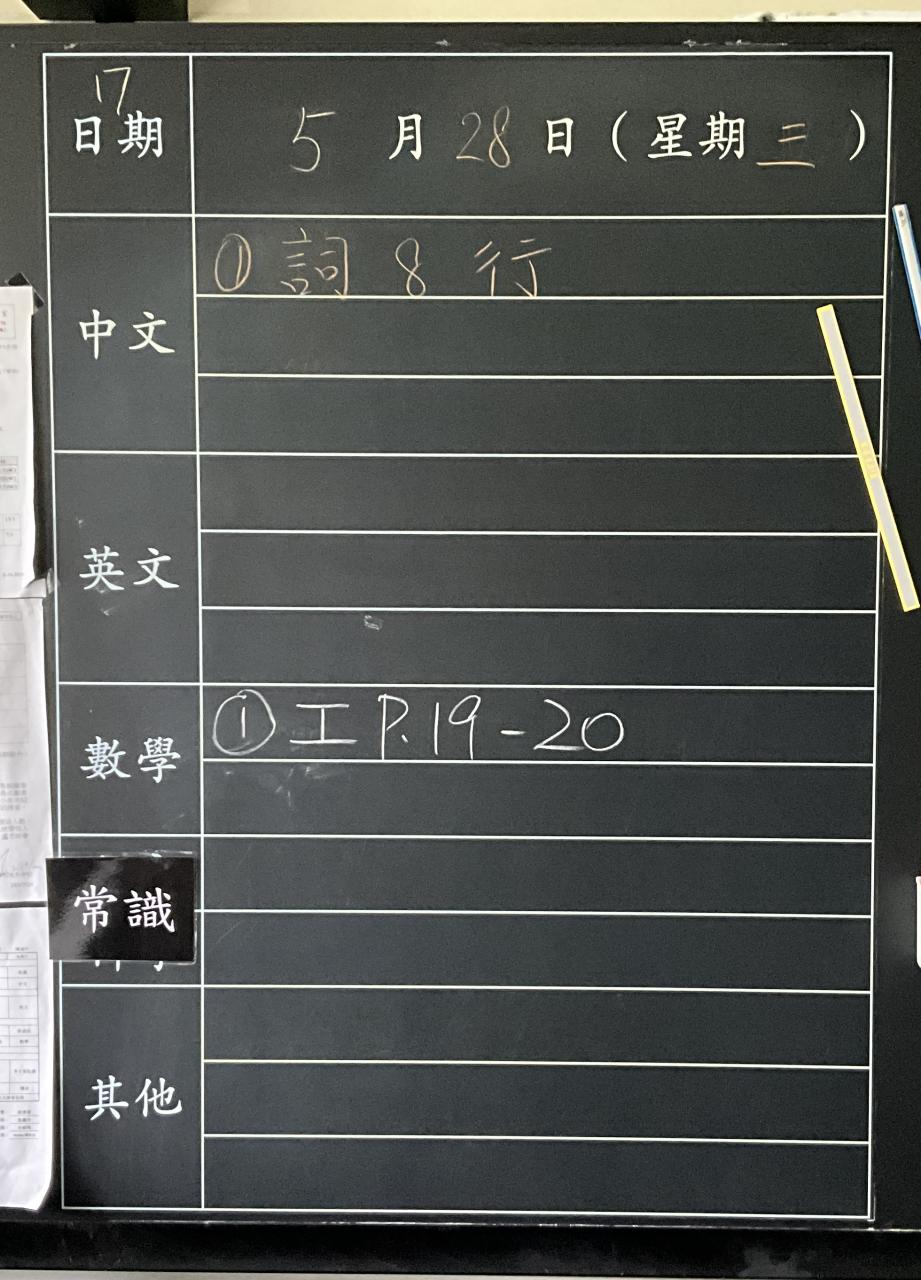 17
日期 5 月 28 日 ( 星期 三 )
中文
① 詞 8 行
英文
數學
① 工 P.19-20
常識
其他